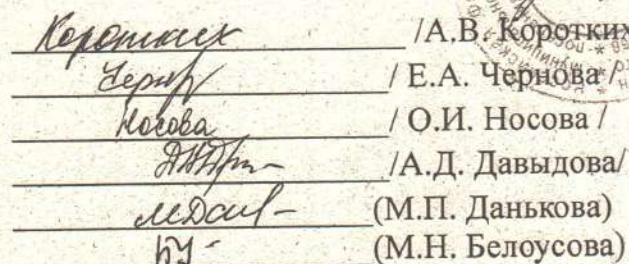 Коротких /А.В. Коротких
Чернов / Е.А. Чернова /
Носова / О.И. Носова /
/А.Д. Давыдова/
(М.П. Данькова)
(М.Н. Белоусова)